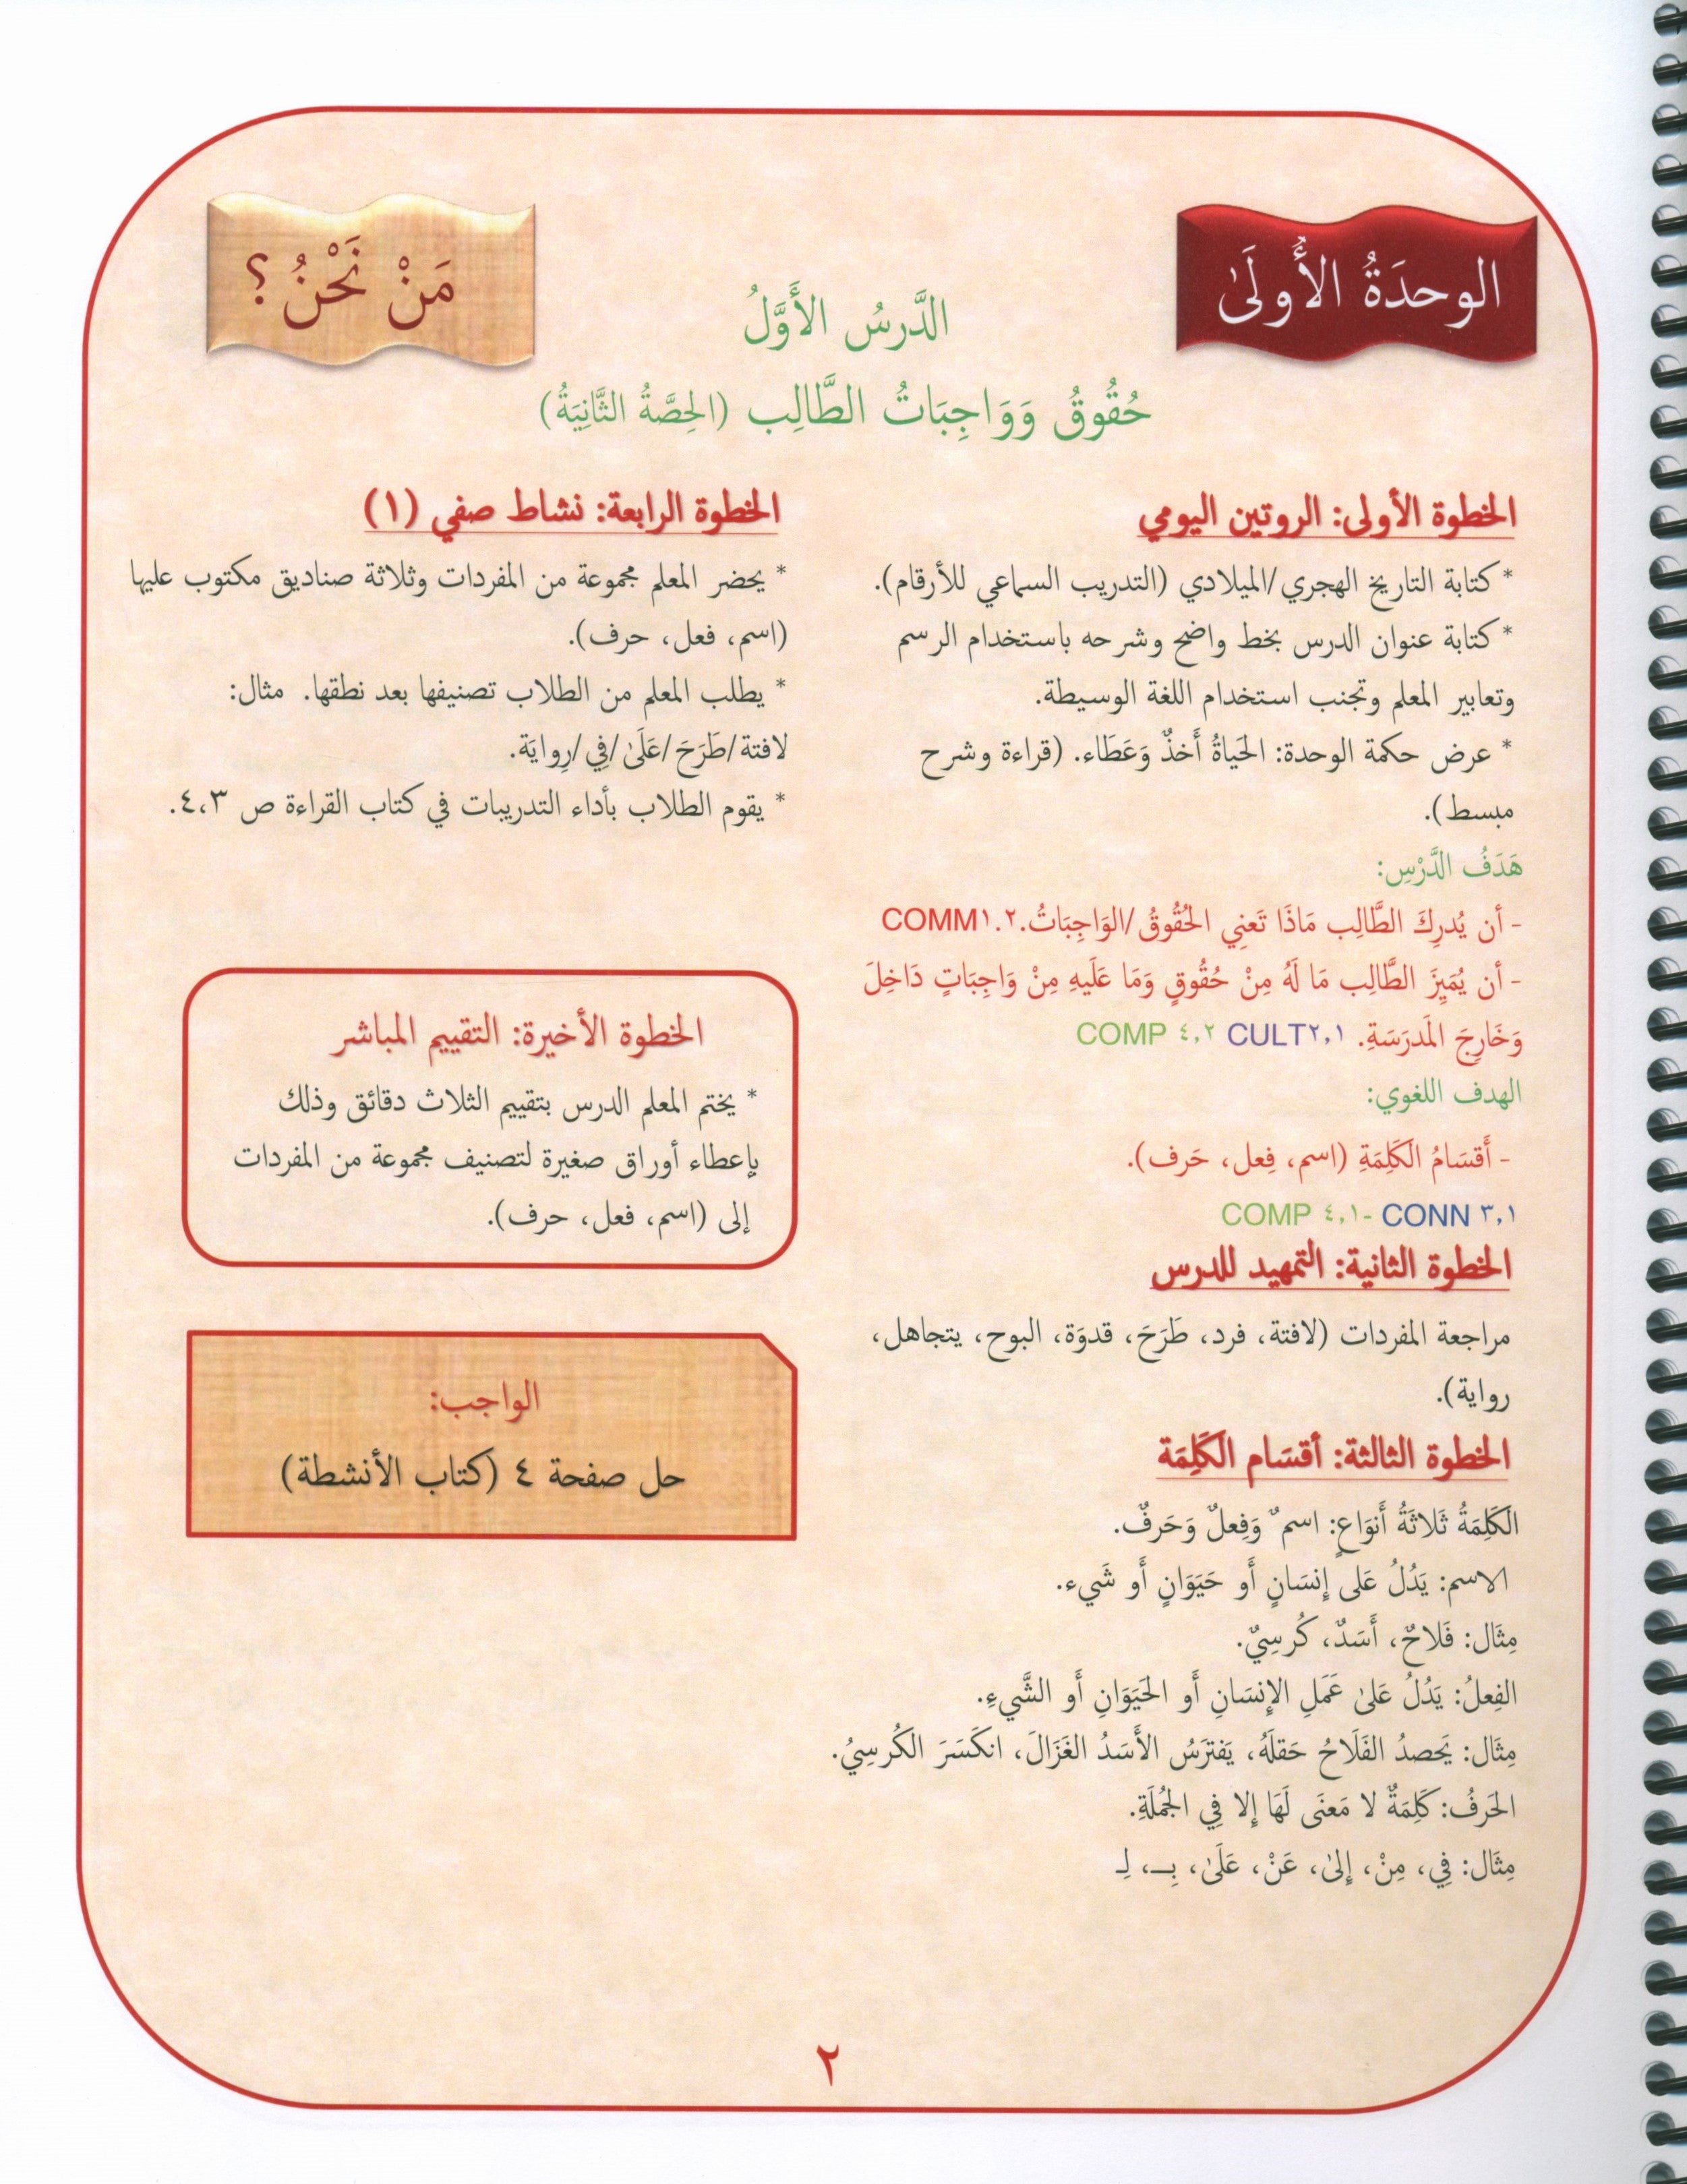 الوحدَةُ الأُولَىٰ
مَنْ نَحْنُ ؟
الدَّرسُ الأَوَّلُ
حُقُوقُ وَوَاجِبَاتُ الطَّالِب (الحِصَّةُ الثَّانِيَةُ)
الخطوة الأولى: الروتين اليومي
* كتابة التاريخ الهجري/الميلادي (التدريب السماعي للأرقام).
* كتابة عنوان الدرس بخط واضح وشرحه باستخدام الرسم
وتعابير المعلم وتجنب استخدام اللغة الوسيطة.
* عرض حكمة الوحدة: الحَياةُ أَخذٌ وَعَطَاء. (قراءة وشرح
مبسط).
هَدَفُ الدَّرْسِ:
- أن يُدرِكَ الطَّالِب مَاذَا تَعنِي الحُقُوقُ/الوَاجِبَاتُ.COMM١.٢
- أن يُمَيِزَ الطَّالِب مَا لَهُ مِنْ حُقُوقٍ وَمَا عَلَيهِ مِنْ وَاجِبَاتٍ دَاخِلَ
وَخَارِجَ المَدرَسَةِ. CULT٢,١ COMP ٤,٢
الهدف اللغوي:
- أَقسَامُ الكَلِمَةِ (اسم، فِعل، حَرف).
COMP ٤,١- CONN ٣,١
الخطوة الثانية: التمهيد للدرس
مراجعة المفردات (لافتة، فرد، طَرَحَ، قدوَة، البوح، يتجاهل،
رواية).
الخطوة الثالثة: أقسَام الكَلِمَة
الكَلِمَةُ ثَلاثَةُ أَنوَاعٍ: اسمٌ وَفِعلٌ وَحَرفٌ.
الاسم: يَدُلُ عَلى إِنسَانٍ أَو حَيَوَانٍ أَو شَيء.
مِثَال: فَلاحٌ، أَسَدٌ، كُرسِيٌ.
الفِعلُ: يَدُلُ عَلىٰ عَمَلِ الإِنسَانِ أَو الحَيَوَانِ أَو الشَّيءِ.
مِثَال: يَحصدُ الفَلَاحُ حَقلَهُ، يَفتَرَسُ الأَسَدُ الغَزَالَ، انكَسَرَ الكُرسِيُ.
الحَرفُ: كَلِمَةٌ لا مَعنَى لَهَا إِلا فِي الجُملَةِ.
مِثَال: فِي، مِنْ، إِلىٰ، عَنْ، عَلَىٰ، بِـ، لِـ
الخطوة الرابعة: نشاط صفي (١)
* يحضر المعلم مجموعة من المفردات وثلاثة صناديق مكتوب عليها
(اسم، فعل، حرف).
* يطلب المعلم من الطلاب تصنيفها بعد نطقها. مثال:
لافتة/طَرَحَ/عَلَىٰ/فِي/رِوايَة.
* يقوم الطلاب بأداء التدريبات في كتاب القراءة ص ٤،٣.
الخطوة الأخيرة: التقييم المباشر
* يختم المعلم الدرس بتقييم الثلاث دقائق وذلك
بإعطاء أوراق صغيرة لتصنيف مجموعة من المفردات
إلى (اسم، فعل، حرف).
الواجب:
حل صفحة ٤ (كتاب الأنشطة)
٢